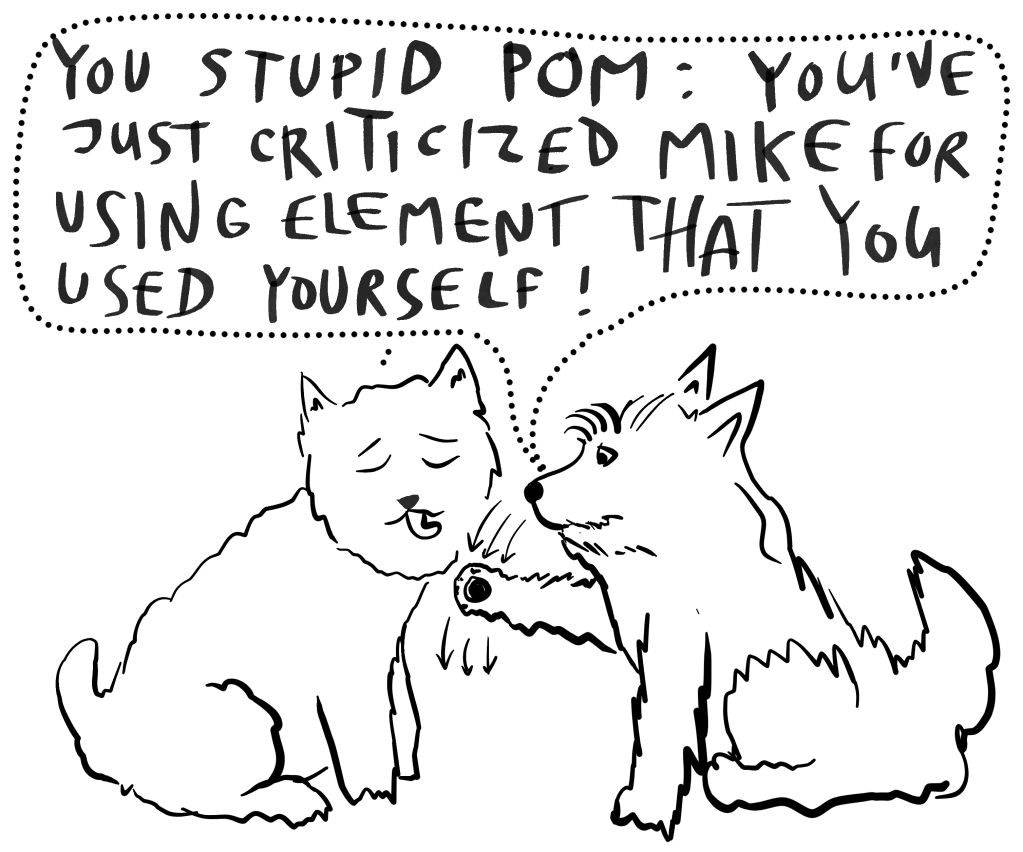 YOU STUPID POM: YOU'VE
JUST CRITICIZED MIKE FOR
USING ELEMENT THAT YOU
USED YOURSELF!